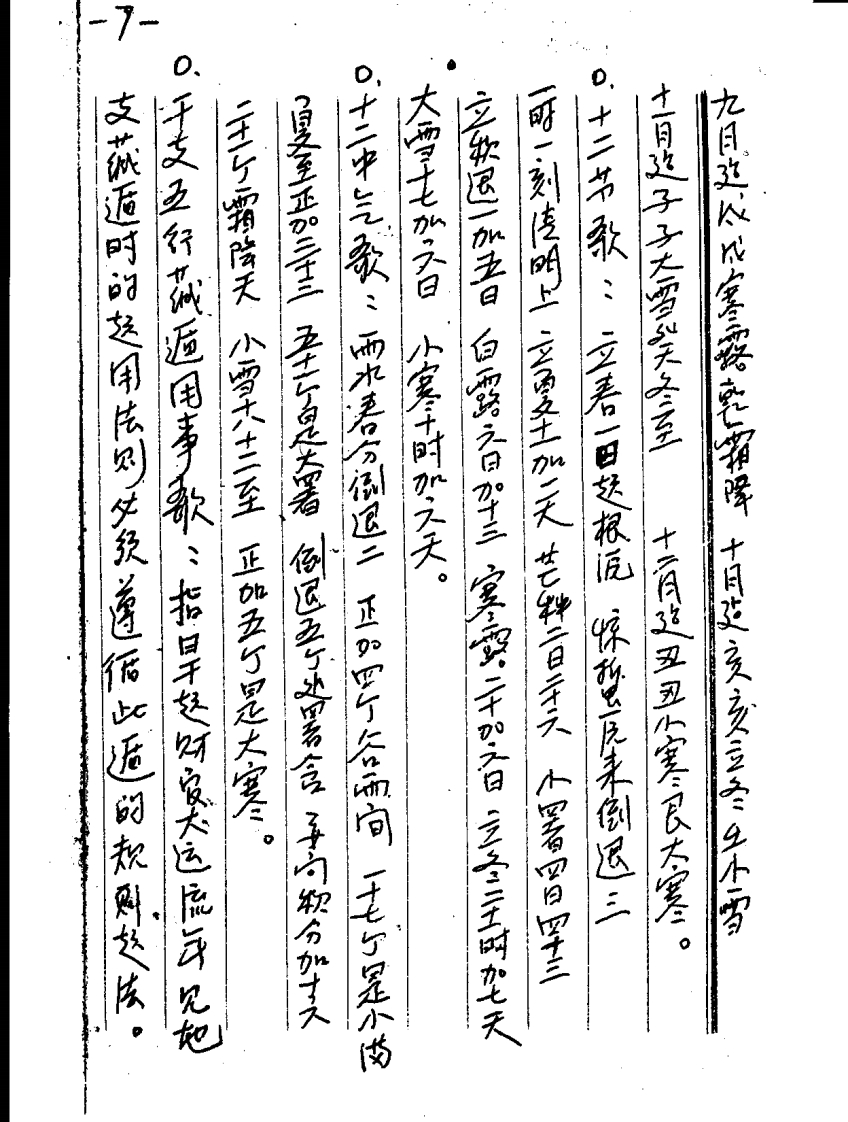 -7-
九月建戌戌寒露乾霜降 十月建亥亥立冬壬小雪
十一月建子子大雪癸天冬至 十二月建丑丑小寒艮大寒。
0. 十二节歌：立春一日起根沅 惊蛰一沅来倒退三
一时一刻清明上 立夏十一加一天 芒种二日二十六 小署四日四十三
立秋退一加五日 白露六日加十三 寒露二十加六日 立冬二十一时加七天
大雪十七加六日 小寒十时加六天。
0. 十二中气歌：雨水春分倒退二 正加四个谷雨间 一十七个是小满
夏至正加二十三 五十一个是大署 倒退五个处署含 子宫秋分加十六
二十一个霜降天 小雪十八十二至 正加五个是大寒。
0. 干支五行藏遁用事歌：指日干起财官大运流年见地
支藏遁时的起用法则必须遵循此遁的规则起法。